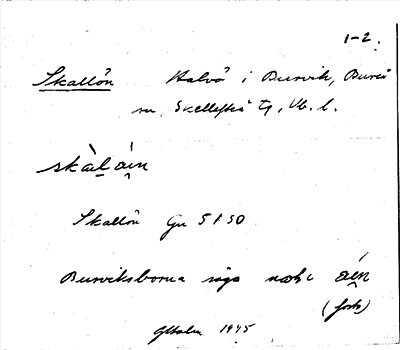 1-2.
Skallön Halvö i Burvik, Bureå
sn. Skellefteå tg, Vb. l.
skàl̠ án
Skallön Gu 5150
Burviksborna säga
(forts)
1945